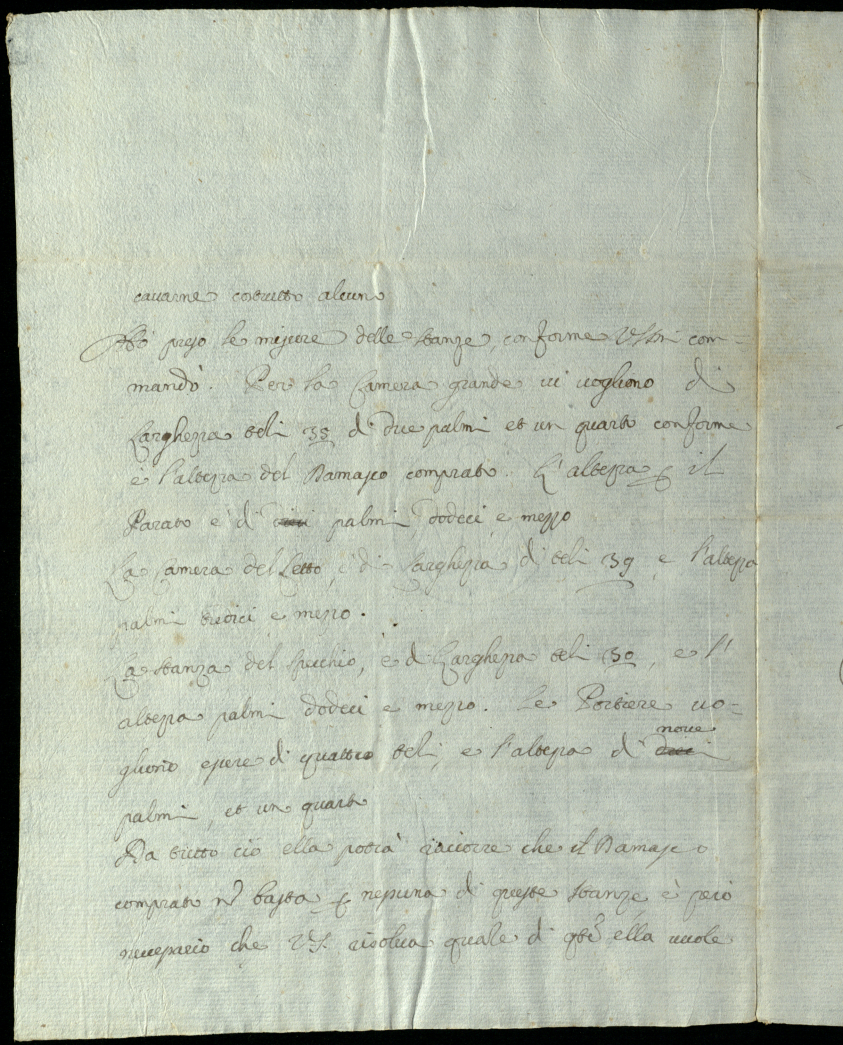 cauarne costrutto alcuno
Hò preso le misure delle stanze, conforme VSIll com-
mandò. Per la Camera grande ui uogliono di
Larghezza teli 35 di due palmi et un quarto conforme
è l'altezza del Damasco comprato. L'altezza p il
Parato è di palmi dodeci e mezzo
La Camera del Letto, è di Larghezza di teli 39 e l'altezza
palmi tredici e mezzo.
La stanza del specchio, è di Larghezza teli 30, e l'
altezza palmi dodeci e mezzo. Le Portiere uo-
gliono essere di quattro teli, e l'altezza di noue
palmi, et un quarto
Da tutto ciò ella potrà raccorre che il Damasco
comprato nō basta p nessuna di queste stanze, è però
necessario che VS. risolua quale di qste ella uuole